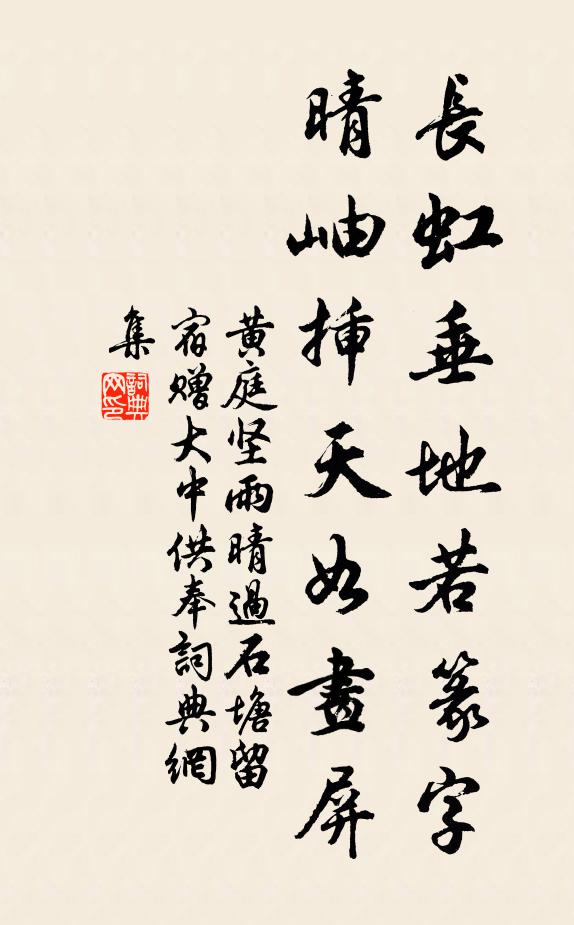 長虹垂地若篆字
晴岫插天如畫屏
黄庭坚雨晴過石塘留
宿赠大中供奉詞典網
集
詞典
网印